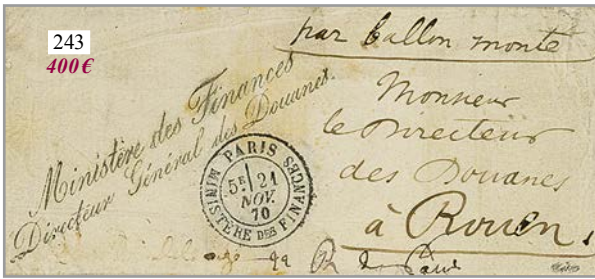 243
400€
par ballon monté
Ministère des Finances
Directeur Général des Douanes.
PARIS
5E 21
NOV.
70
MINISTÈRE DES FINANCES
Monsieur
le Directeur
des Douanes
à Rouen.